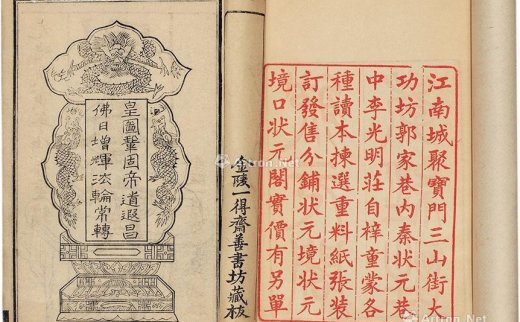 江南城聚寶門三山街大
功坊郭家巷内秦狀元巷
中李光明莊自梓童蒙各
種讀本揀選重料紙張裝
訂發售分鋪狀元境狀元
境口狀元閣實價有另單
金陵一得齋善書坊藏板
皇圖鞏固帝道遐昌
佛日增輝法輪常轉
Artron.Net